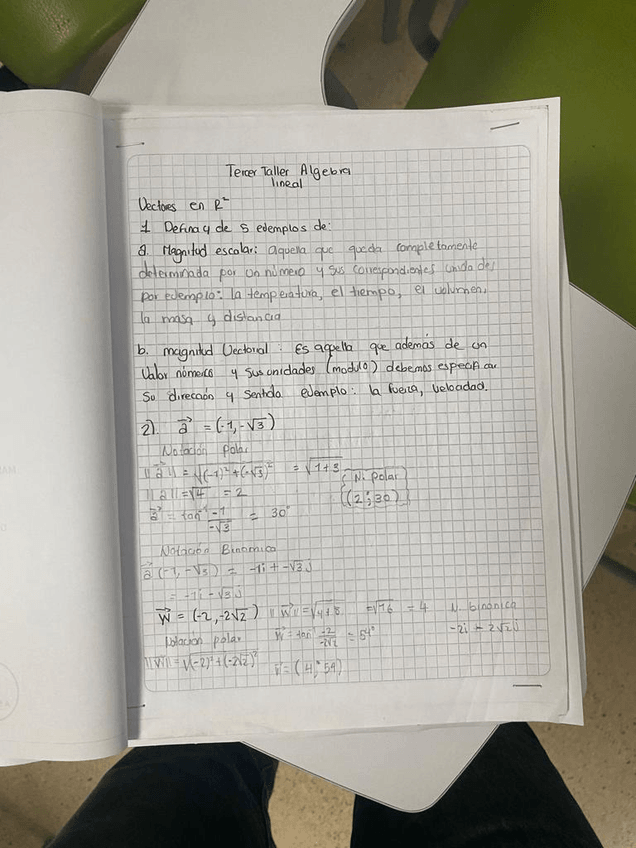 Tercer Taller Algebra
lineal
Vectores en R²
1 Defina y de 5 edemplos de:
a. Magnitud escalar: aquella que queda completamente
determinada por un número y sus correspondientes unidades
por edemplo: la temperatura, el tiempo, el volumen,
la masa y distancia
b. magnitud Vectorial: Es aquella que además de un
Valor númerico y sus unidades (modulo) debemos especificar
Su dirección y Sentido edemplo: la fuerza, velocidad.
2). a⃗ = (-1, -√3)
Notación Polar
||a⃗|| = √(-1)²+(-√3)² = √1+3
N. Polar
||a|| = √4 = 2
(2; 30)
a⃗ = tan⁻¹ -1/-√3 = 30°
Notación Binomica
a⃗ (-1, -√3) = -1i + -√3j
= -1i - √3j
W⃗ = (-2, -2√2) ||W⃗|| = √4+8 = √16 = 4 N. binómica
-2i - 2√2j
Notación polar W⃗ = tan⁻¹ -2/-2√2 = 54°
||W⃗|| = √(-2)²+(-2√2)² = (4; 54)